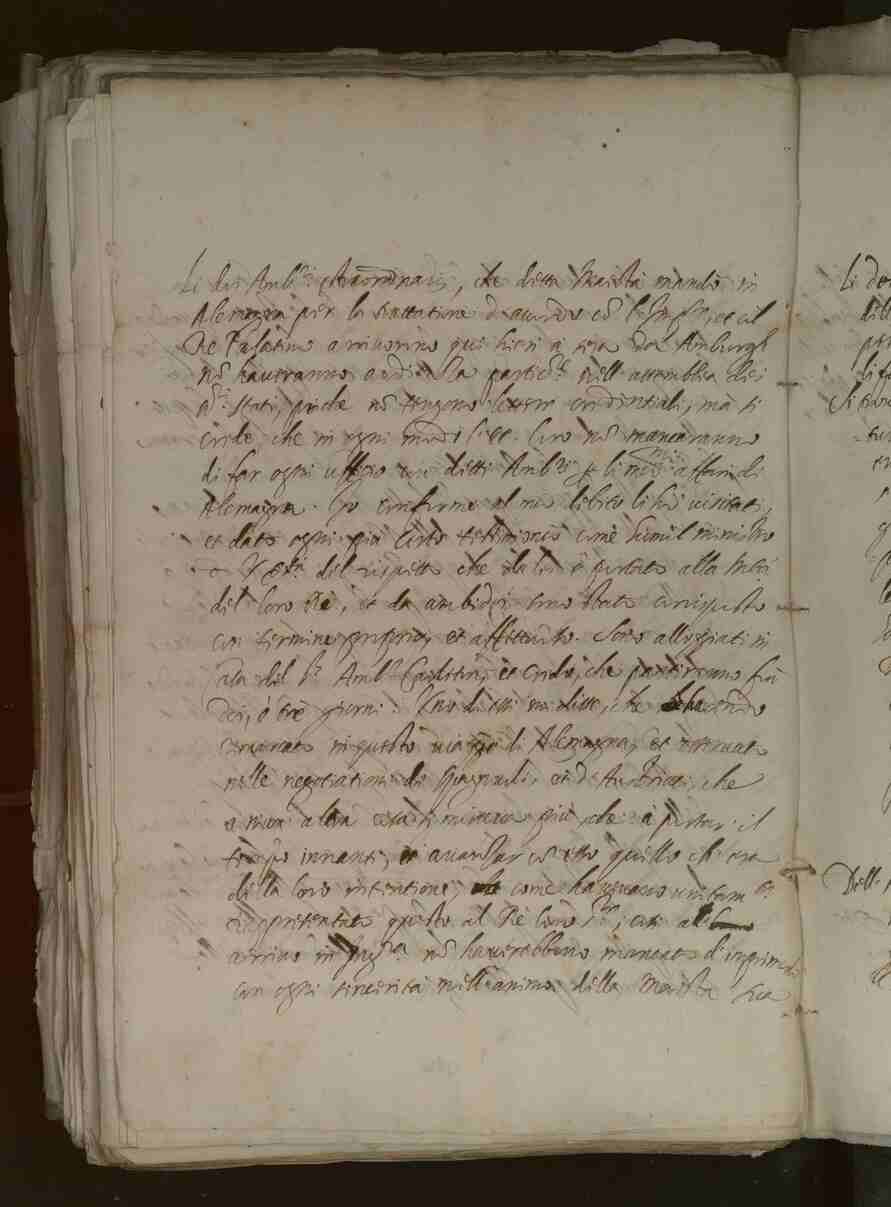 Li dui Amb.ri straordinarij, che ditta Maestà mandò in
Alemagna per la trattatione d'accordo co l'Imp.re, et il
Re Palatino arrivorino qui hieri à sera da Amburgh
nō haveranno audienza partic.re nell'assemblea dei
s.ri Stati, poiche nō tengono lettere credentiali, ma si
crede che in ogni modo l'ecc. loro nō mancaranno
di far ogni ufficio con detti Amb.ri li affari di
Alemagna. Io conforme al mio debito li hò visitati,
et dato ogni più certo testimonio come humil ministro
del rispetto che da lei è portato alla M.tà
del loro Rè, et da ambidoi sono stato corrisposto
con termine proprio, et affettuoso. Sono allogiati in
casa del s.r Amb.r Carleton, et credo, che partiranno frà
doi, ò trè giorni. Uno di essi mi disse, che havendo
in questo viaggio di Alemagna, et osservato
nelle negotiationi de Spagnuoli, et d'Austriaci, che
à niuna altra cosa si mirava più, che à portar il
tempo innanti, et avanzar cō esso quello ch'era
della loro intentione, come havevano unitam.te
rappresentato questo al Rè loro s.re, così
arrivo in Ing.ra nō haverebbono mancato d'imprimer
con ogni sincerità nell'animo della Maestà sua
Li
Si
Dell